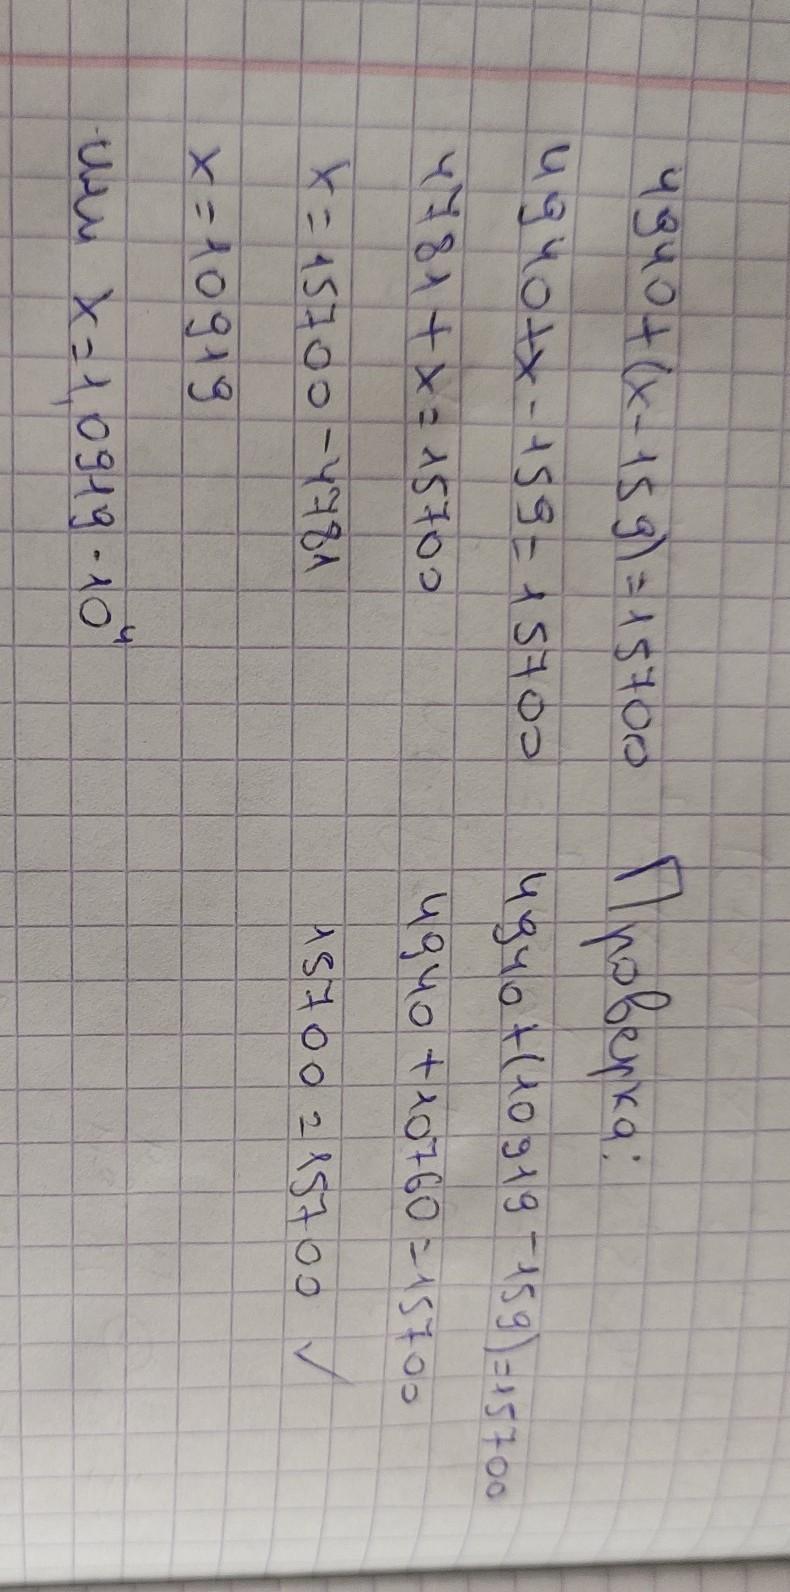 4940+(x-159)=15700
4940+x-159=15700
4781+x=15700
x=15700-4781
x=10919
или x=1,0919·10⁴
Проверка:
4940+(10919-159)=15700
4940+10760=15700
15700=15700 ✓